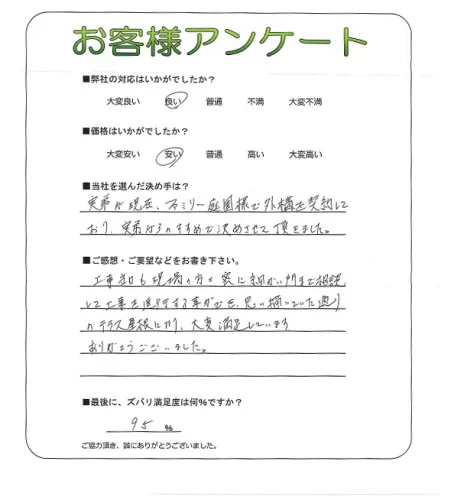 お客様アンケート
■弊社の対応はいかがでしたか？
大変良い 良い 普通 不満 大変不満
■価格はいかがでしたか？
大変安い 安い 普通 高い 大変高い
■当社を選んだ決め手は？
実弟が現在、ファミリー庭園様で外構を契約して
おり、実弟からのすすめで決めさせて頂きました。
■ご感想・ご要望などをお書き下さい。
工事中も現場の方と密に細かい所まで相談
して工事を進行する事ができ、思い描いていた通り
のテラス屋根になり、大変満足しています
ありがとうございました。
■最後に、ズバリ満足度は何％ですか？
95 %
ご協力頂き、誠にありがとうございました。